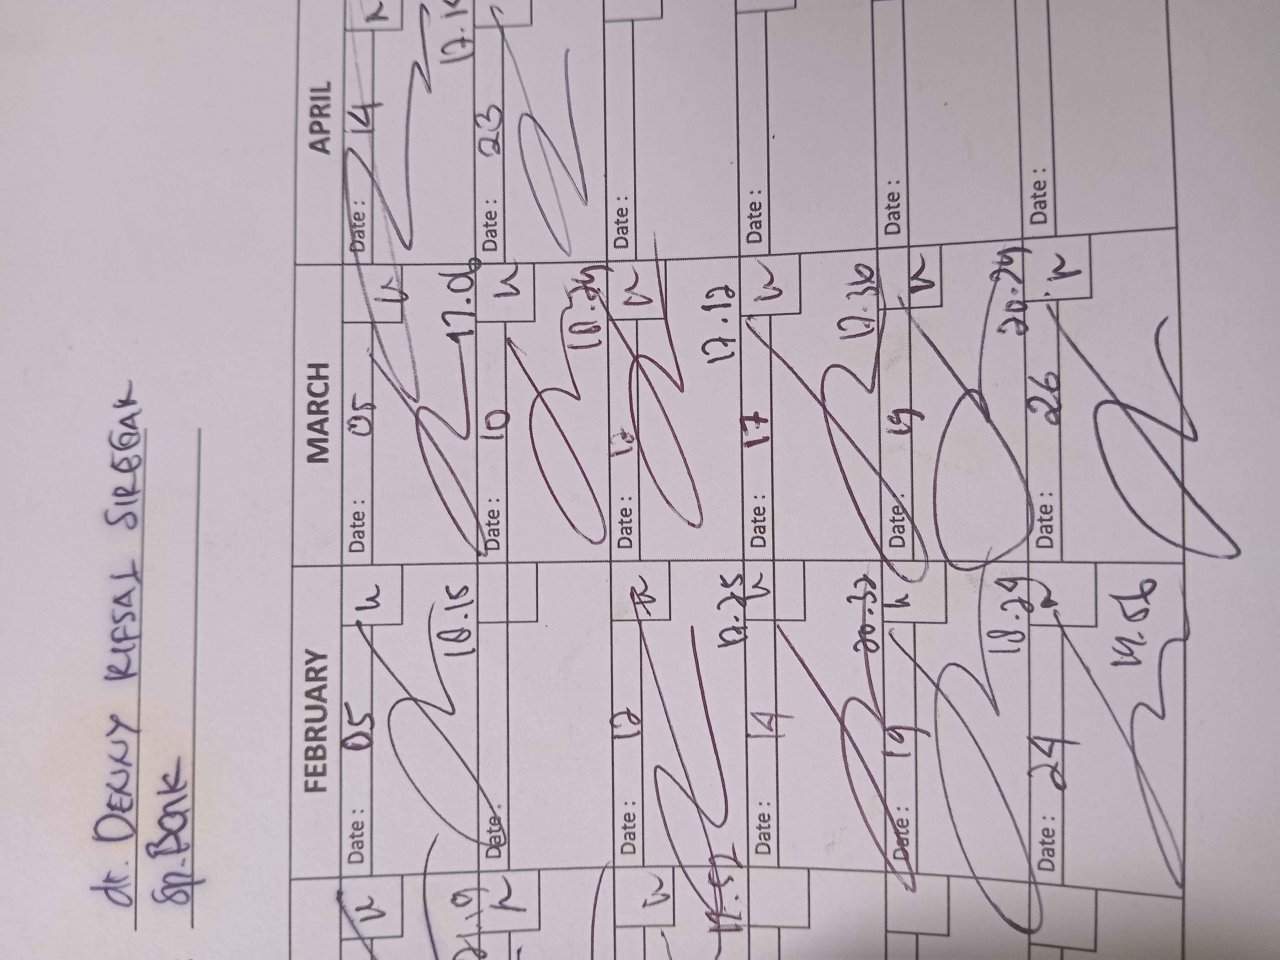 dr. DENNY RIFSAL SIREGAR
Sp.Bank
FEBRUARY MARCH APRIL
Date : 05 Date : 05 Date : 14
18.15 17.06
Date : Date : 10 Date : 23
18.24
Date : 12 Date : 12 Date :
17.25 17.12
Date : 14 Date : 17 Date :
20.32 17.36
Date : 19 Date : 19 Date :
18.29 20.24
Date : 24 Date : 26 Date :
19.56